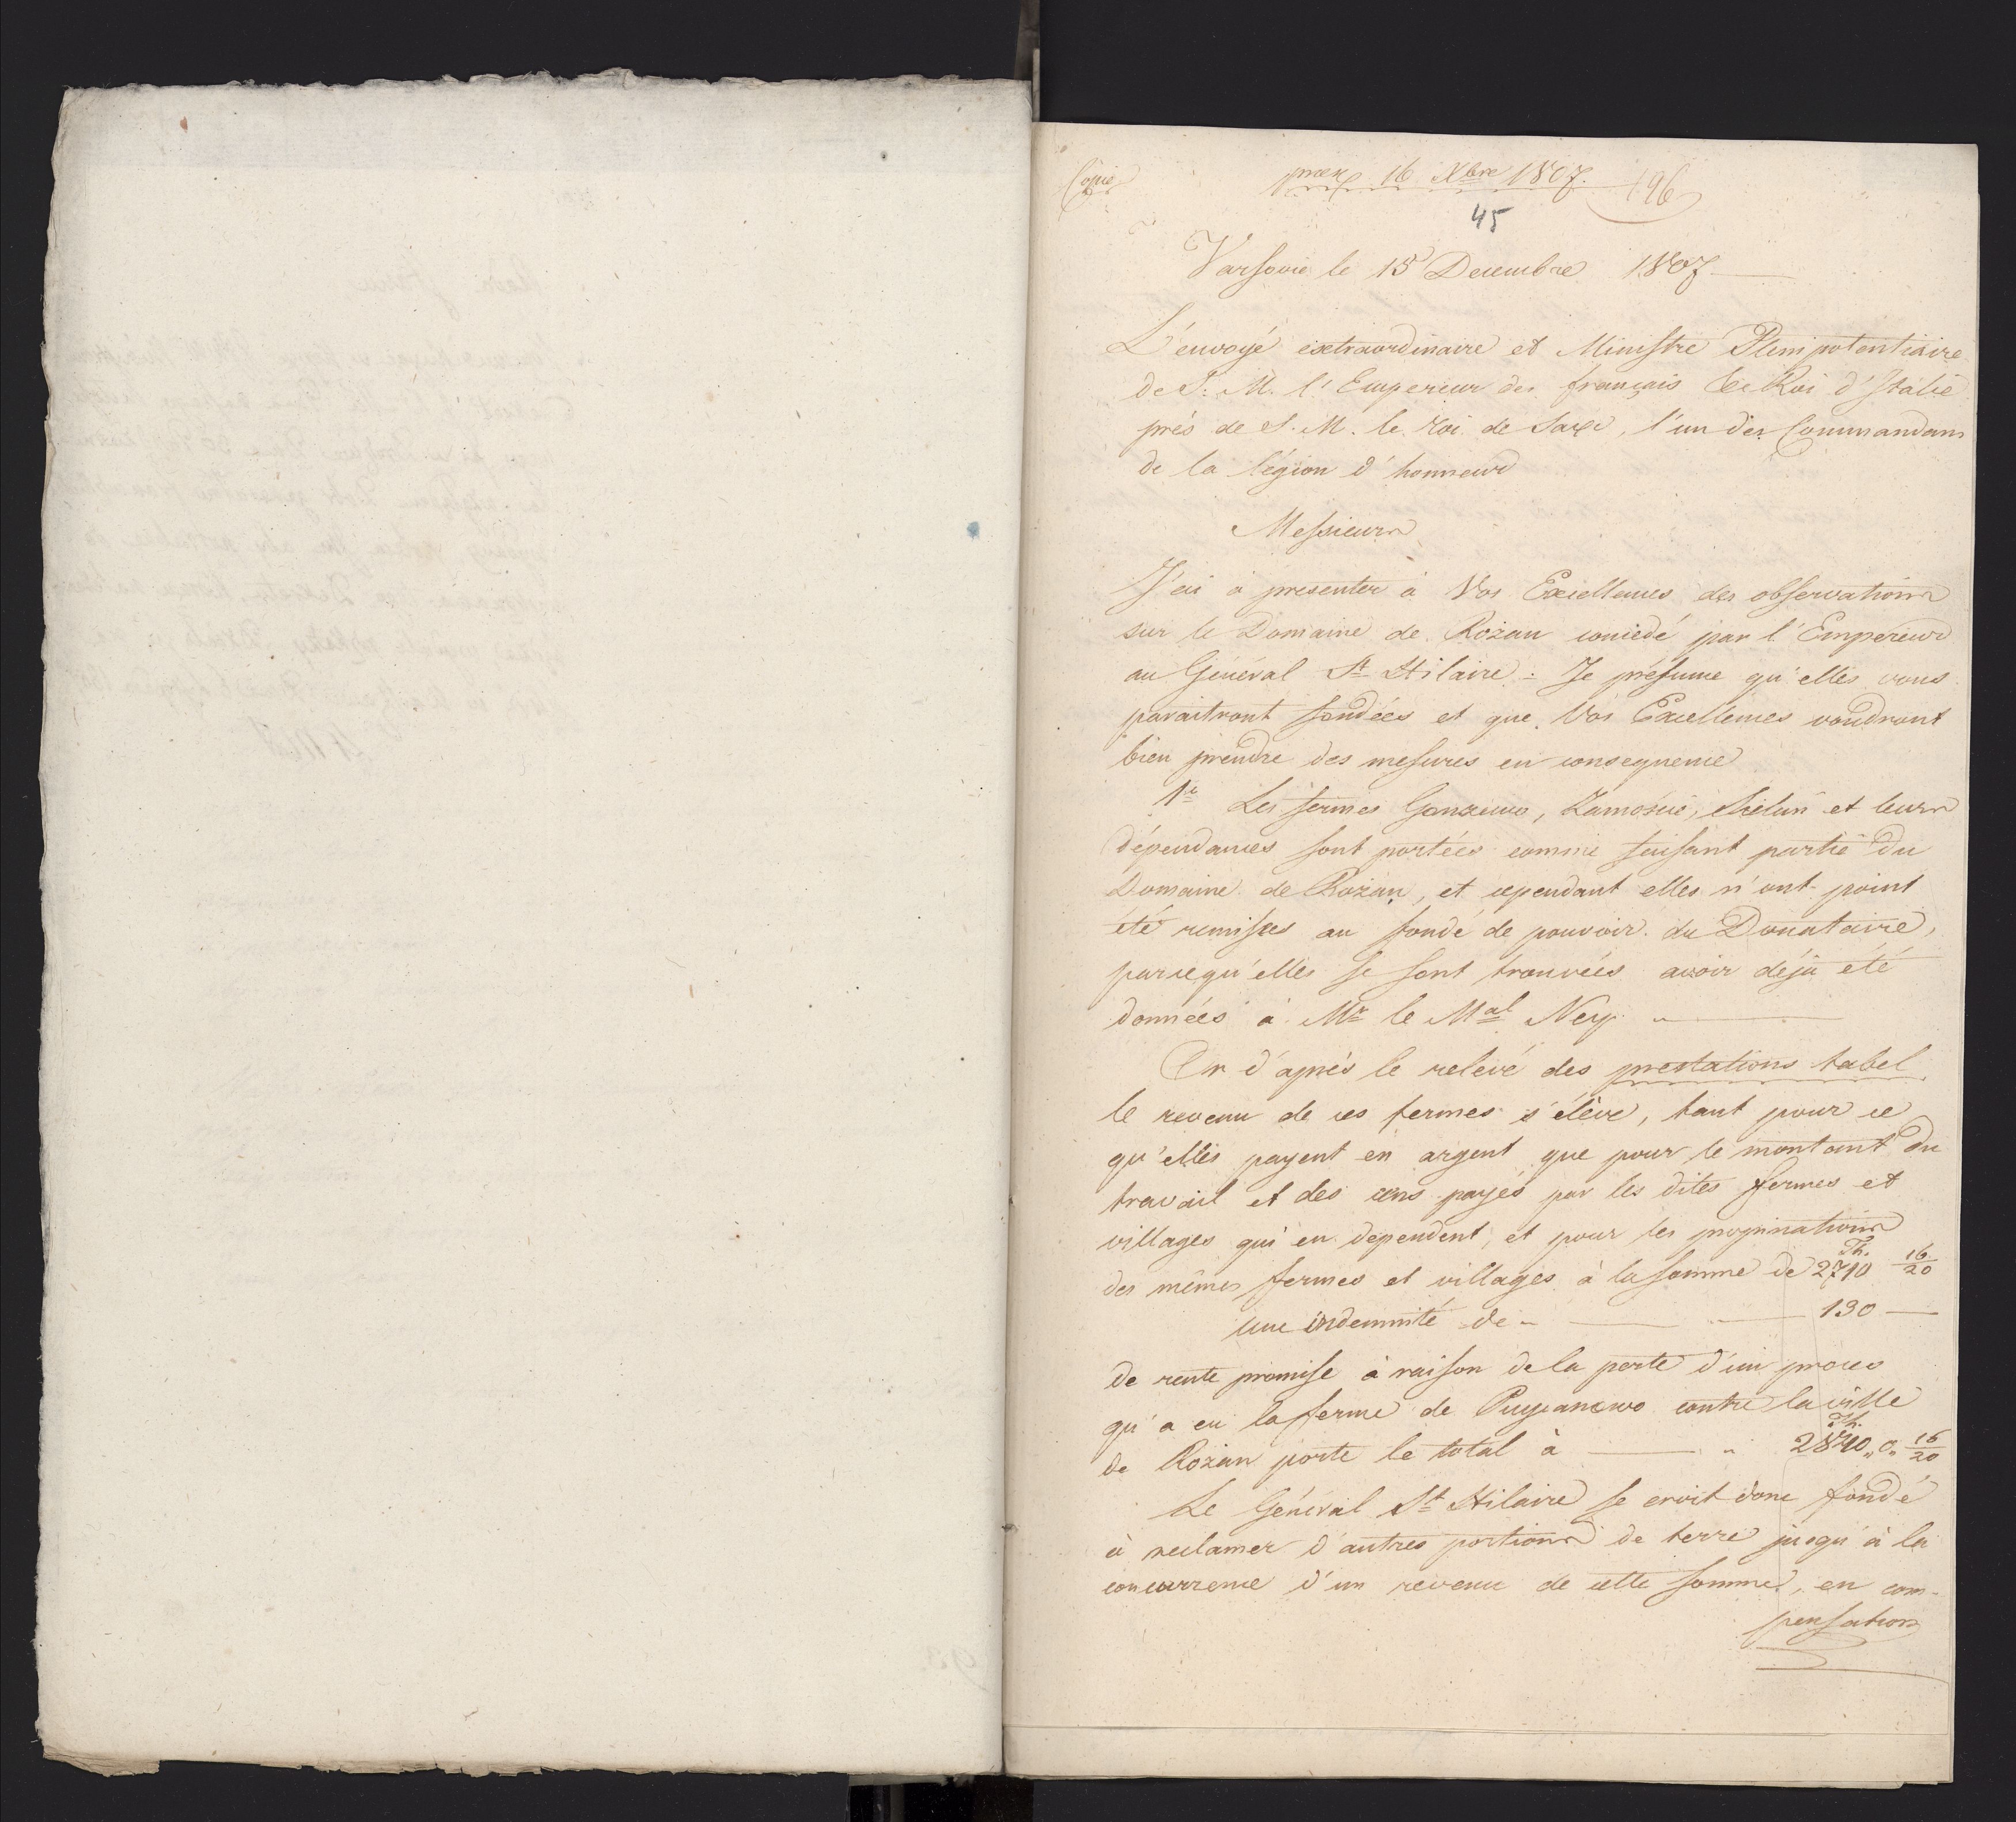 Copie
16 Xbre 1807. 196
45
Varsovie le 15 Decembre 1807
L'envoyé extraordinaire et Ministre Plenipotentiaire
de S. M. l'Empereur des français le Roi d'Italie
près de S. M. le roi de Saxe, l'un des Commandans
de la légion d'honneur
Messieurs
J'ai à presenter à Vos Excellences des observations
sur le Domaine de Rożan concedé par l'Empereur
au Général St Hilaire. Je présume qu'elles vous
paraitront fondées et que Vos Excellences voudront
bien prendre des mesures en consequence
1e Les fermes Gonzewo, Zamoście, Chelun et leurs
dépendances sont portées comme faisant partie du
Domaine de Rożan, et cependant elles n'ont point
été remises au fondé de pouvoir du Donataire,
parcequ'elles se sont trouvées avoir déjà eté
données à Mr le Mal Ney.
Or d'après le relevé des prestations tabel
le revenu de ces fermes s'élève, tant pour ce
qu'elles payent en argent que pour le montant du
travail et des cens payés par les dites fermes et
villages qui en dependent, et pour les propinations
des mêmes fermes et villages à la somme de Th. 2710 16/20
une indemnité de 130
de rente promise à raison de la perte d'un proces
qu'a eu la ferme de contre la ville
de Rożan porte le total à Th. 2840 „ 0 „ 16/20
Le Général St Hilaire se croit donc fondé
à reclamer d'autres portions de terre jusqu'à la
concurrence d'un revenu de cette somme, en com-
pensation